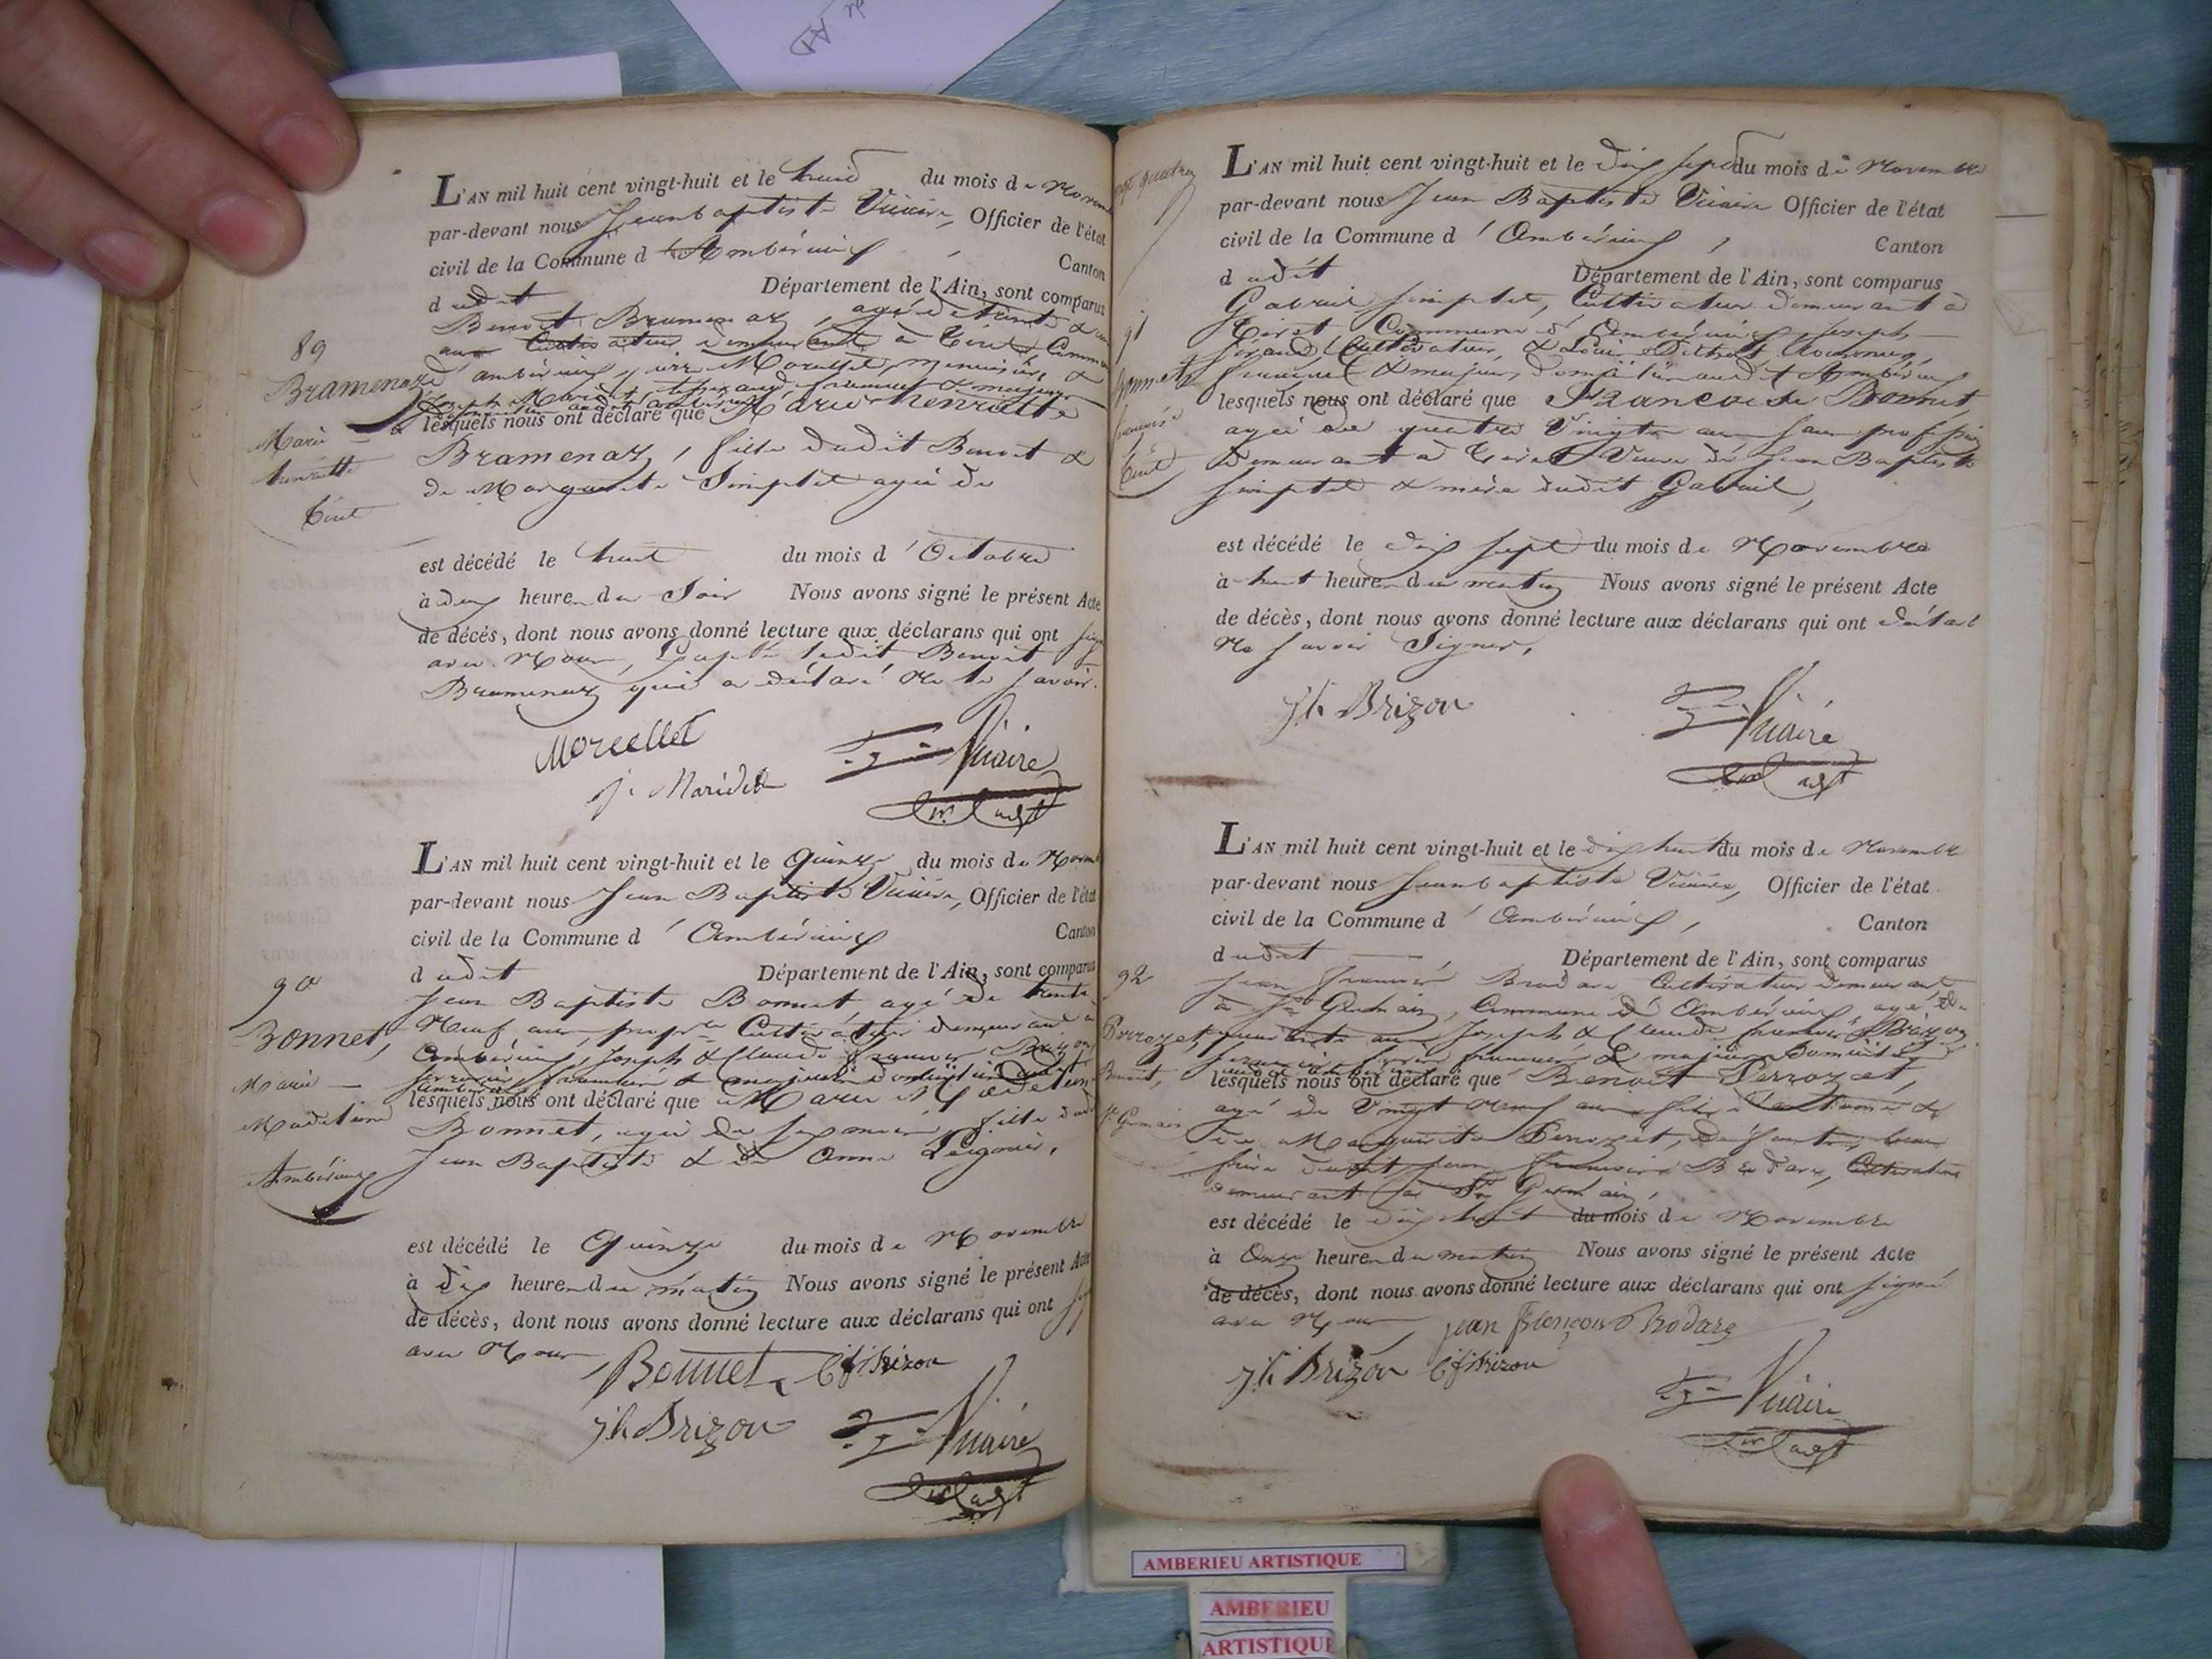 L'AN mil huit cent vingt-huit et le huit du mois de Novem
par-devant nous Jean baptiste Vicaire, Officier de l'état
civil de la Commune d'Ambérieux, Canton
dudit Département de l'Ain, sont comparus
Benoit Bramenaz, agé de trente &
ans Cultivateur demeurant à Tiret Commune
89
Bramenaz
Marie
henriette
Tiret
d'ambérieux, Morellet, menuisier, &
Joseph Maridet, françois & majeurs
lesquels nous ont déclaré que Marie henriette
Bramenaz, fille dudit Benoit &
de Marguerite Simplet agée de
est décédé le huit du mois d'Octobre
à deux heures du Soir Nous avons signé le présent Acte
de décès, dont nous avons donné lecture aux déclarans qui ont signé
avec Nous, ledit Benoit
Bramenaz qui a déclaré Ne le Savoir.
Morellet
j. Maridet
Vicaire
L'AN mil huit cent vingt-huit et le Quinze du mois de Novem
par-devant nous Jean Baptiste Vicaire, Officier de l'état
civil de la Commune d'Ambérieux Canton
dudit Département de l'Ain, sont comparus
90
Bonnet,
Marie
Madelaine
Ambérieux
Jean Baptiste Bonnet, agé de trente
Neuf ans, Cultivateur demeurant à
Ambérieux, Joseph & Claude françois Brizon
lesquels nous ont déclaré que Marie Madelaine
Bonnet, agée de six mois, fille dudit
Jean Baptiste & de Anne
est décédé le Quinze du mois de Novembre
à dix heures du matin Nous avons signé le présent Acte
de décès, dont nous avons donné lecture aux déclarans qui ont signé
avec Nous
Bonnet C f Brizon
Jh Brizon Vicaire
L'AN mil huit cent vingt-huit et le dix sept du mois de Novembre
par-devant nous Jean Baptiste Vicaire Officier de l'état
civil de la Commune d'Ambérieux, Canton
dudit Département de l'Ain, sont comparus
91
Bonnet
françoise
Tiret
Gabriel Simplet, Cultivateur demeurant à
Tiret Commune d'Ambérieux, Joseph
Cultivateur, & Louis
françois & majeurs, domiciliés audit Ambérieux
lesquels nous ont déclaré que Francoise Bonnet
agée de quatre Vingts ans Sans profession
Demeurant à Tiret Veuve de Jean Baptiste
Simplet & mère dudit Gabriel,
est décédé le dix sept du mois de Novembre
à huit heures du matin Nous avons signé le présent Acte
de décès, dont nous avons donné lecture aux déclarans qui ont déclaré
Ne Savoir Signer,
Jh Brizon Vicaire
L'AN mil huit cent vingt-huit et le dix huit du mois de Novembre
par-devant nous Jean baptiste Vicaire, Officier de l'état
civil de la Commune d'Ambérieux, Canton
dudit Département de l'Ain, sont comparus
92
Perrozet,
Benoit,
St Germain
Jean françois Brodare Cultivateur demeurant
à St Germain, Commune d'Ambérieux, agé de
quarante ans Joseph & Claude françois Brizon
lesquels nous ont déclaré que Benoit Perrozet,
agé de Vingt Neuf ans fils
de Marguerite Perrozet, beau
frère dudit Jean françois Brodare, Cultivateur
demeurant à St Germain,
est décédé le dix huit du mois de Novembre
à Onze heures du matin Nous avons signé le présent Acte
de décès, dont nous avons donné lecture aux déclarans qui ont signé
avec Nous
jean François Brodare
Jh Brizon C f Brizon
Vicaire
AMBERIEU ARTISTIQUE
AMBERIEU
ARTISTIQUE